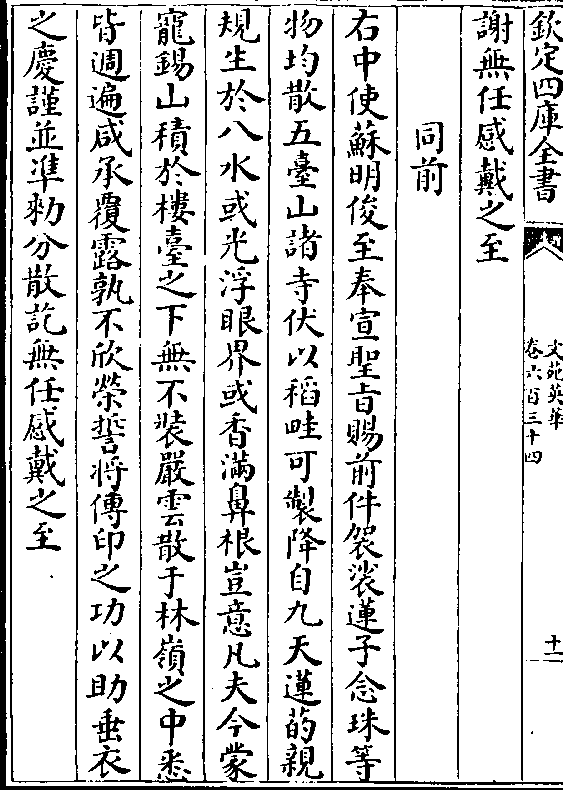 欽定四庫全書
文苑英華
卷六百三十四
十二
謝無任感戴之至
同前
右中使蘇明俊至奉宣聖旨賜前件袈裟蓮子念珠等
物均散五臺山諸寺伏以稻畦可製降自九天蓮菂親
規生於八水或光浮眼界或香滿鼻根豈意凡夫今蒙
寵錫山積於樓臺之下無不裝嚴雲散于林嶺之中悉
皆週遍咸承覆露孰不欣榮誓將傳印之功以助垂衣
之慶謹並準勑分散訖無任感戴之至